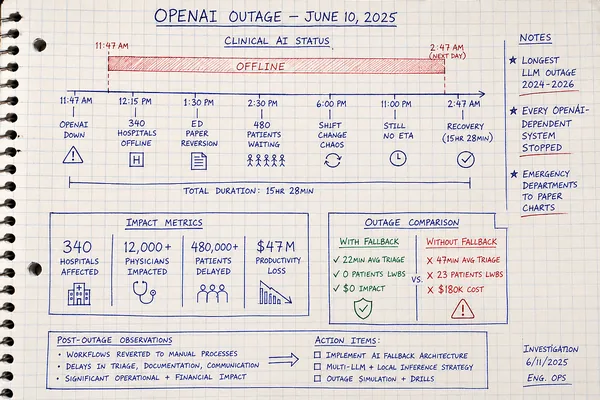 OPENAI OUTAGE – JUNE 10, 2025
CLINICAL AI STATUS
11:47 AM
2:47 AM
(NEXT DAY)
OFFLINE
11:47 AM
12:15 PM
1:30 PM
2:30 PM
6:00 PM
11:00 PM
2:47 AM
OPENAI
DOWN
340
HOSPITALS
OFFLINE
H
ED
PAPER
REVERSION
480
PATIENTS
WAITING
SHIFT
CHANGE
CHAOS
STILL
NO ETA
RECOVERY
(15HR 28MIN)
TOTAL DURATION: 15HR 28MIN
NOTES
★ LONGEST
LLM OUTAGE
2024-2026
★ EVERY OPENAI-
DEPENDENT
SYSTEM
STOPPED
★ EMERGENCY
DEPARTMENTS
TO PAPER
CHARTS
IMPACT METRICS
340
HOSPITALS
AFFECTED
12,000+
PHYSICIANS
IMPACTED
480,000+
PATIENTS
DELAYED
$47M
PRODUCTIVITY
LOSS
OUTAGE COMPARISON
WITH FALLBACK
✓ 22MIN AVG TRIAGE
✓ 0 PATIENTS LWBS
✓ $0 IMPACT
VS.
WITHOUT FALLBACK
X 47MIN AVG TRIAGE
X 23 PATIENTS LWBS
X $180K COST
POST-OUTAGE OBSERVATIONS
• WORKFLOWS REVERTED TO MANUAL PROCESSES
• DELAYS IN TRIAGE, DOCUMENTATION, COMMUNICATION
• SIGNIFICANT OPERATIONAL + FINANCIAL IMPACT
ACTION ITEMS:
☐ IMPLEMENT AI FALLBACK ARCHITECTURE
☐ MULTI-LLM + LOCAL INFERENCE STRATEGY
☐ OUTAGE SIMULATION + DRILLS
INVESTIGATION
6/11/2025
ENG. OPS